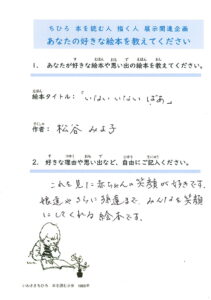 ちひろ 本を読む人 描く人 展示関連企画
あなたの好きな絵本を教えてください
1. あなたが好きな絵本や思い出の絵本を教えてください。
絵本タイトル：「いない いない ばあ」
作者： 松谷 みよ子
2. 好きな理由や思い出など、自由にご記入ください。
これを見た赤ちゃんの笑顔が好きです。
みんなを笑顔
にしてくれる絵本です。
いわさきちひろ 本を読む少女